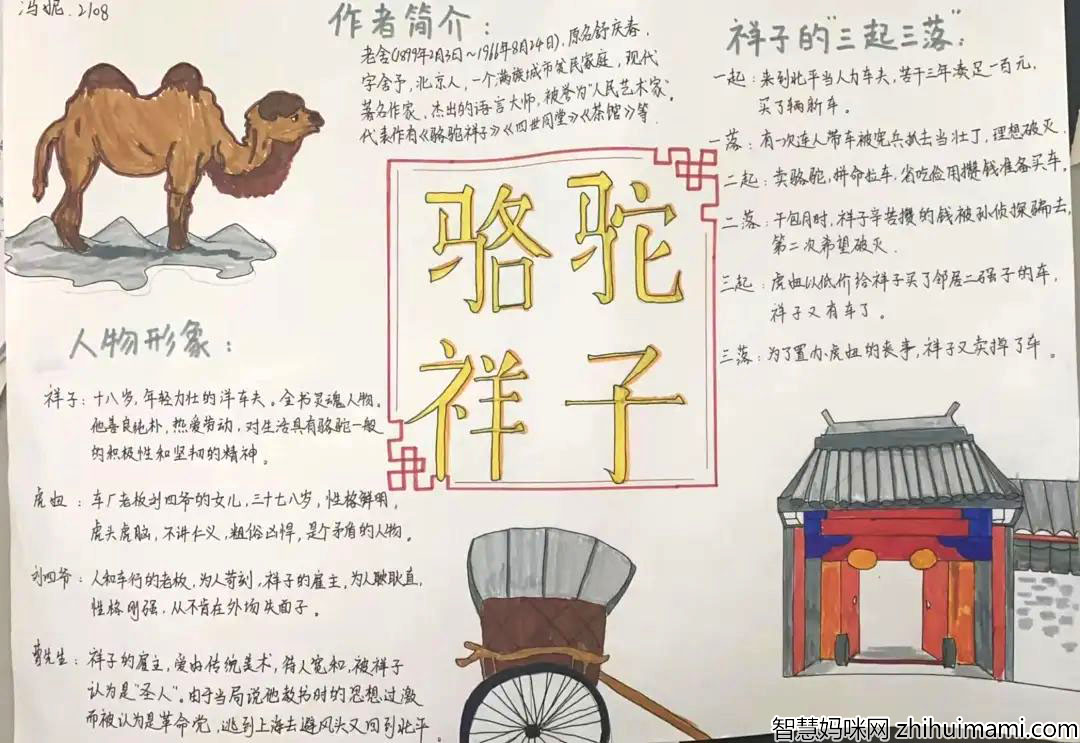 冯妮.2108
作者简介：
老舍(1899年2月3日~1966年8月24日)，原名舒庆春，
字舍予，北京人，一个满族城市贫民家庭，现代
著名作家，杰出的语言大师，被誉为“人民艺术家”。
代表作有《骆驼祥子》《四世同堂》《茶馆》等.
祥子的“三起三落”：
一起：来到北平当人力车夫，苦干三年凑足一百元，
买了辆新车。
一落：有一次连人带车被宪兵抓去当壮丁，理想破灭.
二起：卖骆驼，拼命拉车，省吃俭用攒钱准备买车。
二落：干包月时，祥子辛苦攒的钱被孙侦探骗去，
第二次希望破灭.
三起：虎妞以低价给祥子买了邻居二强子的车，
祥子又有车了。
三落：为了置办虎妞的丧事，祥子又卖掉了车。
骆驼
祥子
人物形象：
祥子：十八岁，年轻力壮的洋车夫。全书灵魂人物。
他善良纯朴，热爱劳动，对生活具有骆驼一般
的积极性和坚韧的精神。
虎妞：车厂老板刘四爷的女儿，三十七八岁，性格鲜明，
虎头虎脑，不讲仁义，粗俗凶悍，是个矛盾的人物。
刘四爷：人和车行的老板，为人苛刻，祥子的雇主，为人耿直，
性格刚强，从不肯在外场失面子。
曹先生：祥子的雇主，爱由传统美术，待人宽和，被祥子
认为是“圣人”。由于当局说他教书时的思想过激
而被认为是革命党，逃到上海去避风头又回到北平。
智慧妈咪网 zhihuimami.com